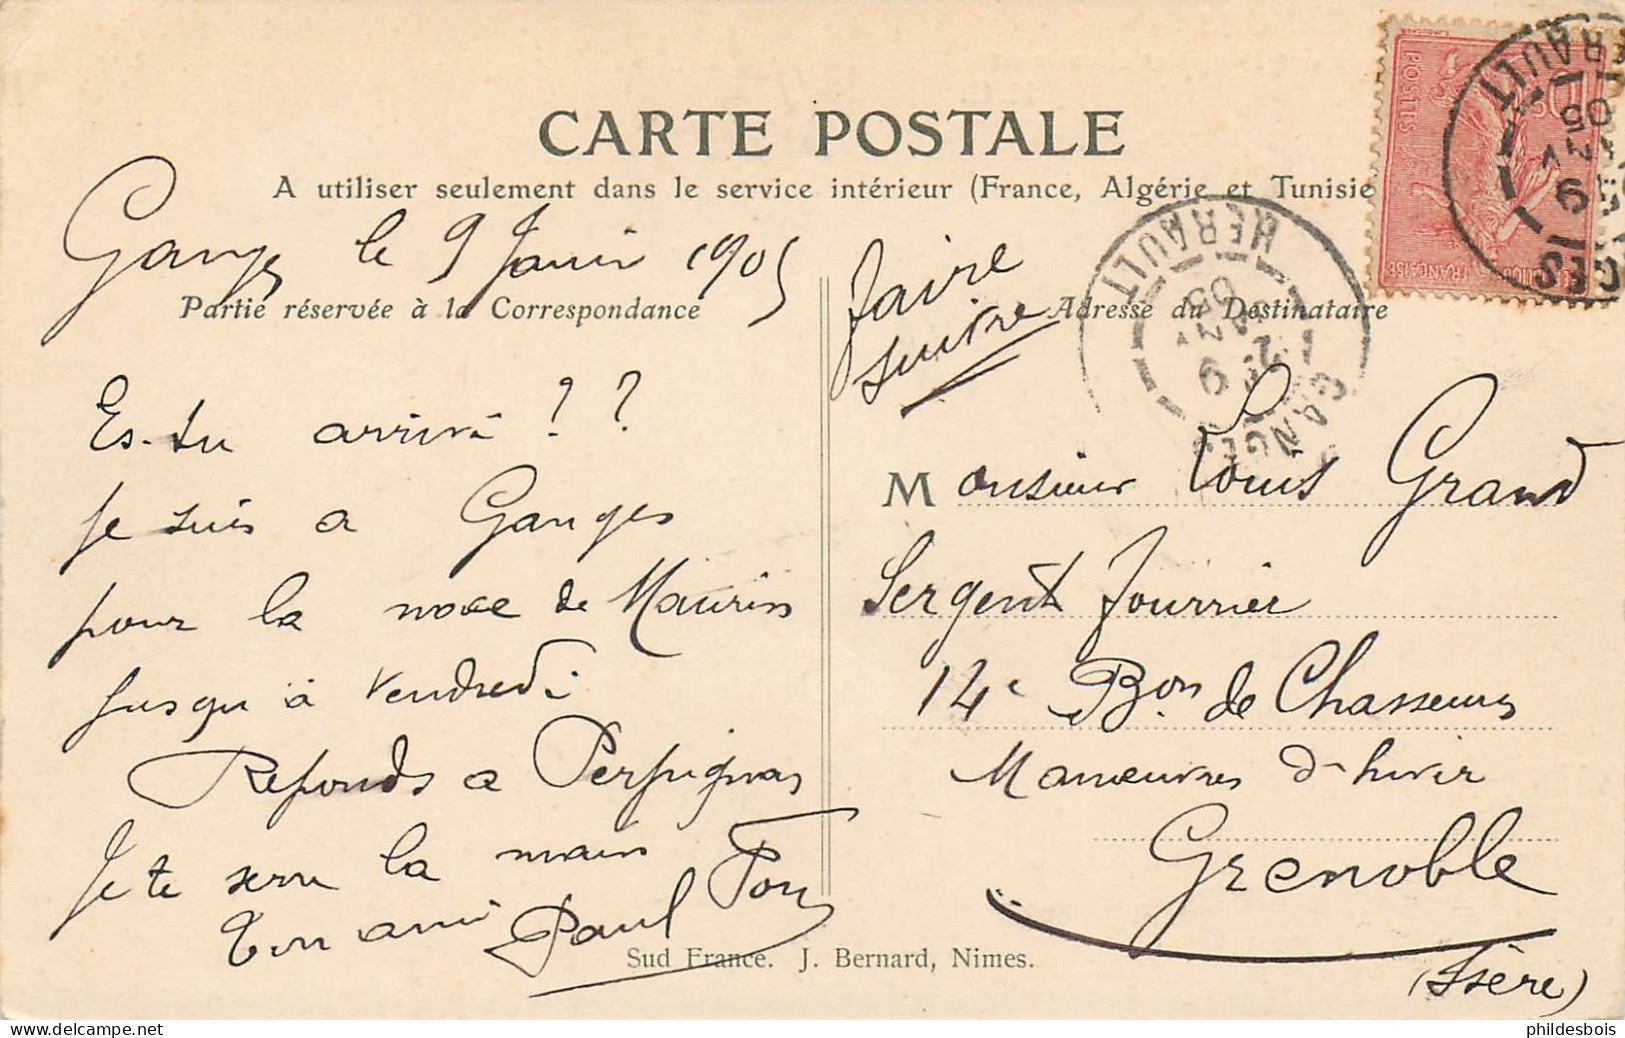 CARTE POSTALE
A utiliser seulement dans le service intérieur (France, Algérie et Tunisie
Ganges le 9 Janvier 1905
Partie réservée à la Correspondance
Es-tu arrivé ??
Je suis a Ganges
pour la noce de Maurin
jusqu'à Vendredi
Reponds a Perpignan
Je te serre la main
Ton ami Paul
faire
suivre
Adresse du Destinataire
Monsieur Louis Grand
Sergent fourrier
14e Bon de Chasseurs
Manœuvres d'hiver
Grenoble
(Isère)
Sud France. J. Bernard, Nimes.
POSTES
FRANÇAISE
GANGES
9
JANV
05
HERAULT
phildesbois